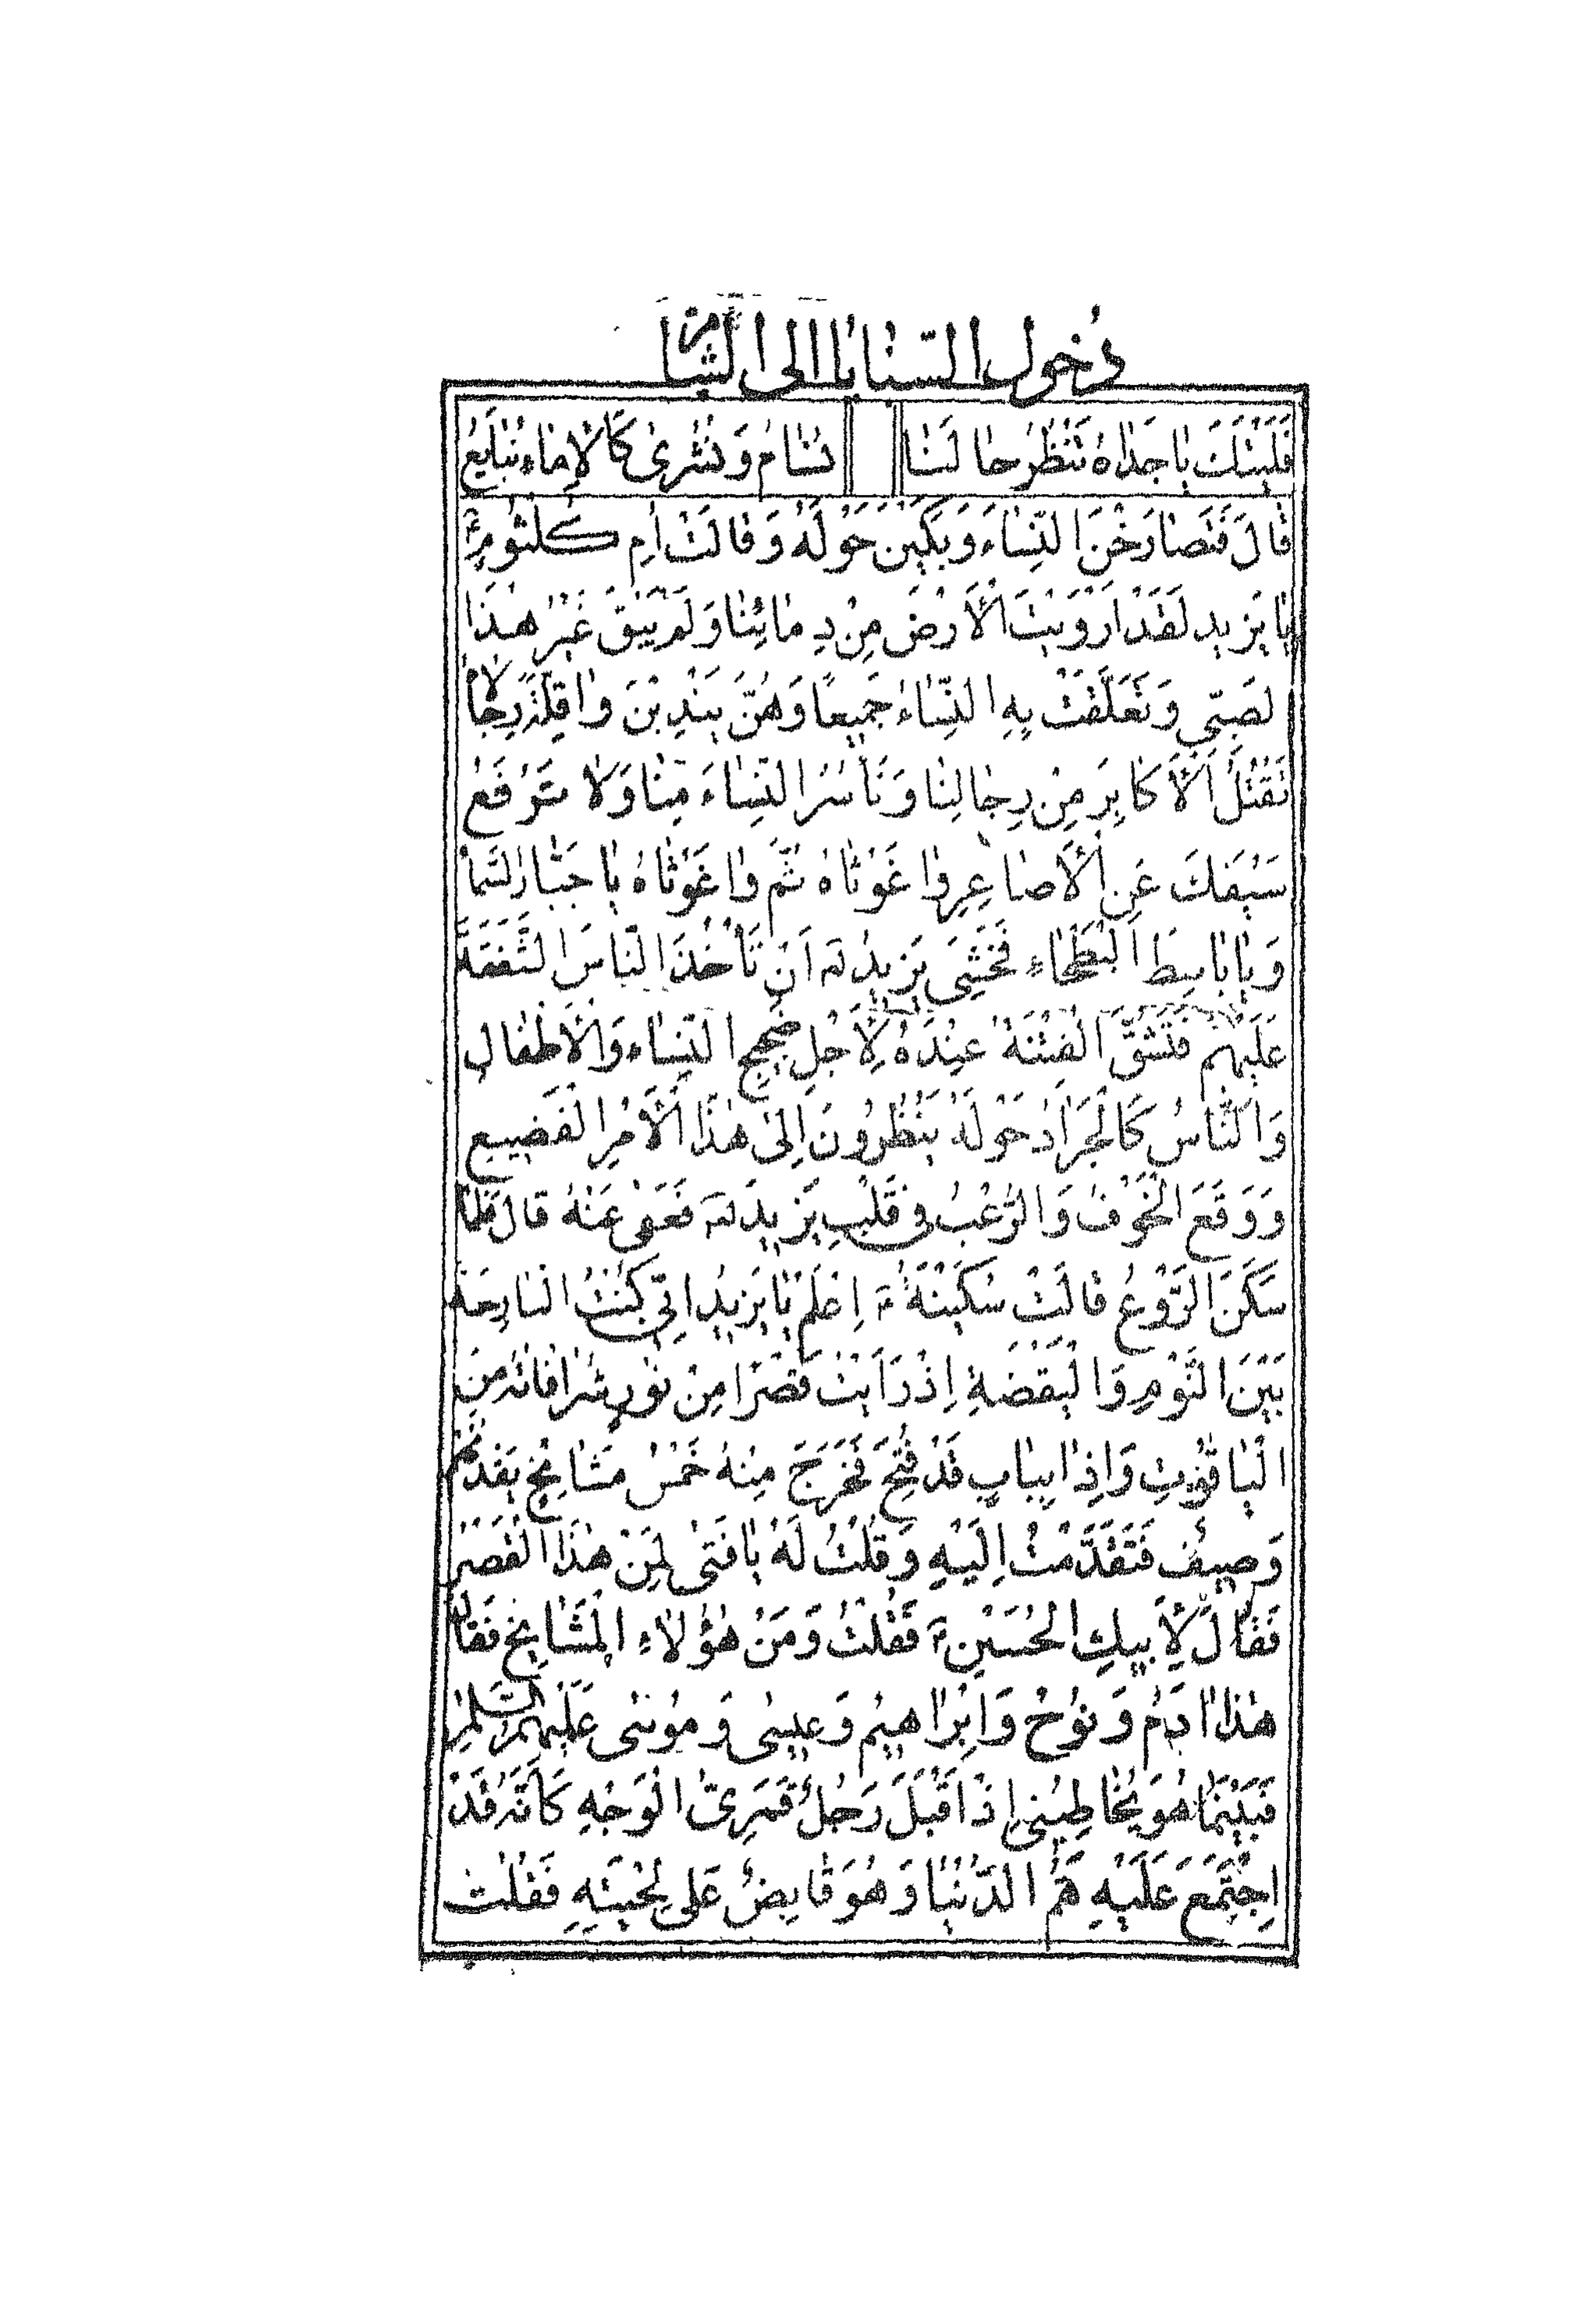 دُخول السّبايا الى الشّام
فَلَيْتَكَ يا جَدّاهُ تَنْظُرُ حالَنا نُسامُ وَ نُشْرىٰ كَالْاِماءِ نُبايَعُ
قالَ فَتَصارَخْنَ النِّساءَ وَبَكَيْنَ حَوْلَهُ وَقالَتْ اُمِّ كُلْثُومٍ ع
يا يَزيد لَقَدْ اَرْوَيْتَ الْاَرْضَ مِنْ دِمائِنا وَلَمْ يَبْقَ غَيْرُ هٰذَا
لصَبّي وَتَعَلَّقَتْ بِهِ النِّساءُ جَميعًا وَهُنَّ يَنْدِبْنَ وا قِلَّةَ رِجالاهُ
تَقْتُلُ اَلْاَكابِرَ مِنْ رِجالِنا وَتَأسُرُ النِّساءَ مِنّا وَلا تَرْفَعُ
سَيْفَكَ عَنِ الْاَصاغِرِ وا غَوْثاهُ ثُمَّ وا غَوْثاهُ يا جَبّارَ السَّماءِ
وَيا باسِطَ الْبَطْحاءِ فَخَشِيَ يَزيدُ لَهُ اَنْ تَأْخُذَ النّاسَ الشَّفَقَةَ
عَلَيْهِمْ فَتَشُقَّ الْفِتْنَةُ عِنْدَهُ لِاَجْلِ ضَجيجِ النِّساءِ وَالْاَطْفالِ
وَالنّاسُ كَالْجَرادُ حَوْلَهُ يَنْظُرُونَ اِلىٰ هٰذَا الْاَمْرِ الْفَضيعِ
وَوَقَعَ الْخَوْفُ وَالرُّعْبُ فى قَلْبِ يَزيدَ لَهُ فَعَفى عَنْهُ قالَ فَلَمّا
سَكَنَ الرَّوْعُ قالَتْ سَكينَةُ ع اِعْلَمْ يا يَزيدُ اِنّى كُنْتُ الْبارِحَةَ
بَيْنَ النَّوْمِ وَالْيَقْضَةِ اِذْ رَاَيْتُ قَصْرًا مِنْ نُورٍ شُرافاتُهُ مِنَ
الْياقُوْتِ وَاِذا بِبابٍ قَدْ فُتِحَ فَخَرَجَ مِنْهُ خَمْسُ مَشايِخٍ يَقْدُمُهُمْ
وَصيفٌ فَتَقَدَّمْتُ اِلَيْهِ وَقُلْتُ لَهُ يا فَتىٰ لِمَنْ هٰذَا الْقَصْرُ
فَقالَ لِاَبيكِ الْحُسَيْنِ ع فَقُلْتُ وَمَنْ هٰؤُلاءِ الْمَشايِخِ فَقالَ
هٰذا اٰدَمُ وَنوُحٌ وَاِبْراهيمُ وَعيسٰى وَموُسٰى عَلَيْهِمُ السَّلامُ
فَبَيْنَما هُوَ يُخاطِبُني اِذْ اَقْبَلَ رَجُلٌ قَمَرِىُّ الْوَجْهِ كَاَنَّهُ قَدْ
اِجْتَمَعَ عَلَيْهِ هَمُّ الدُّنْيا وَهُوَ قابِضٌ عَلى لِحْيَتِهِ فَقُلْتُ